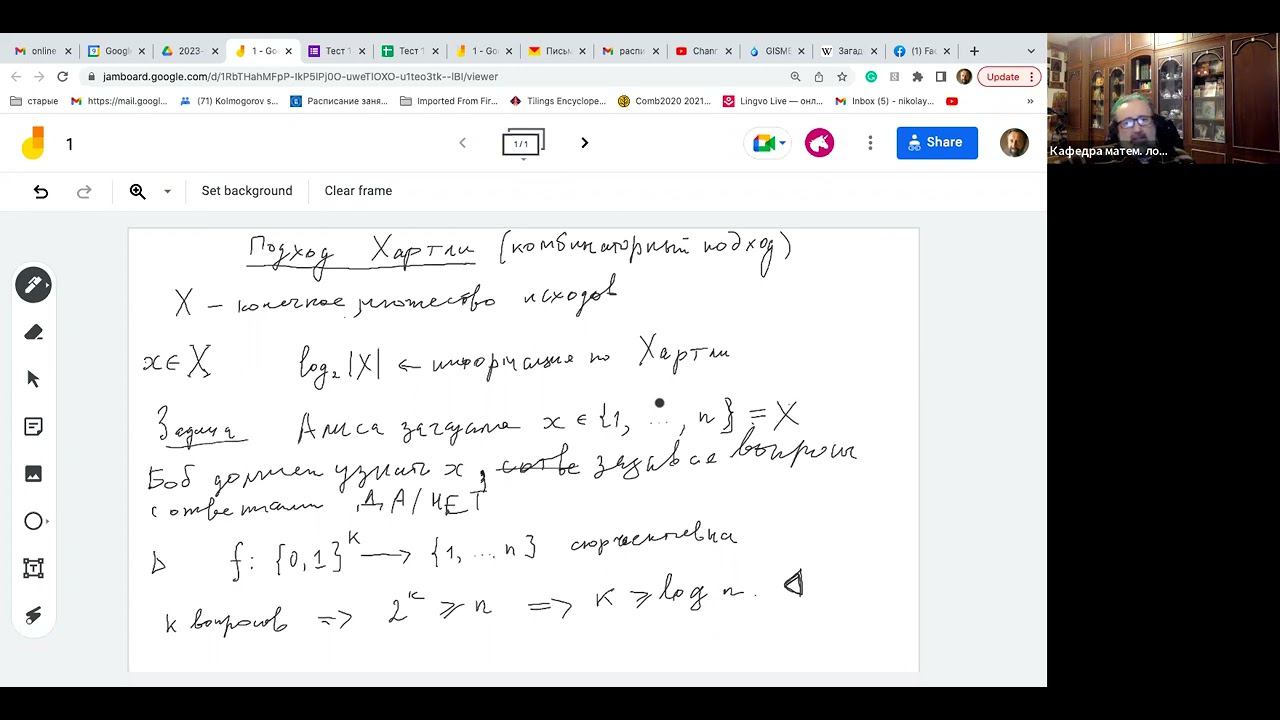 online
Googl
2023-
1 - Go
Тест 1
Тест 1
1 - Go
Письм
распи
Chann
GISME
W Загад
(1) Fac
jamboard.google.com/d/1RbTHahMFpP-IkP5IPj0O-uweTlOXO-u1teo3tk--lBI/viewer
Update
старые
https://mail.googl...
(71) Kolmogorov s...
Расписание заня...
Imported From Fir...
Tilings Encyclope...
Comb2020 2021...
Lingvo Live — онл...
Inbox (5) - nikolay...
»
1
1/1
Share
Set background
Clear frame
Подход Хартли (комбинаторный подход)
X – конечное множество исходов
x ∈ X log₂|X| ← информация по Хартли
Задача Алиса загадала x ∈ {1, ..., n} = X
Боб должен узнать x, задавая вопросы
с ответами ДА/НЕТ
▷ f: {0,1}^k → {1, ... n} сюръективна
k вопросов => 2^k ⩾ n => k ⩾ log n. ◁
Кафедра матем. ло...